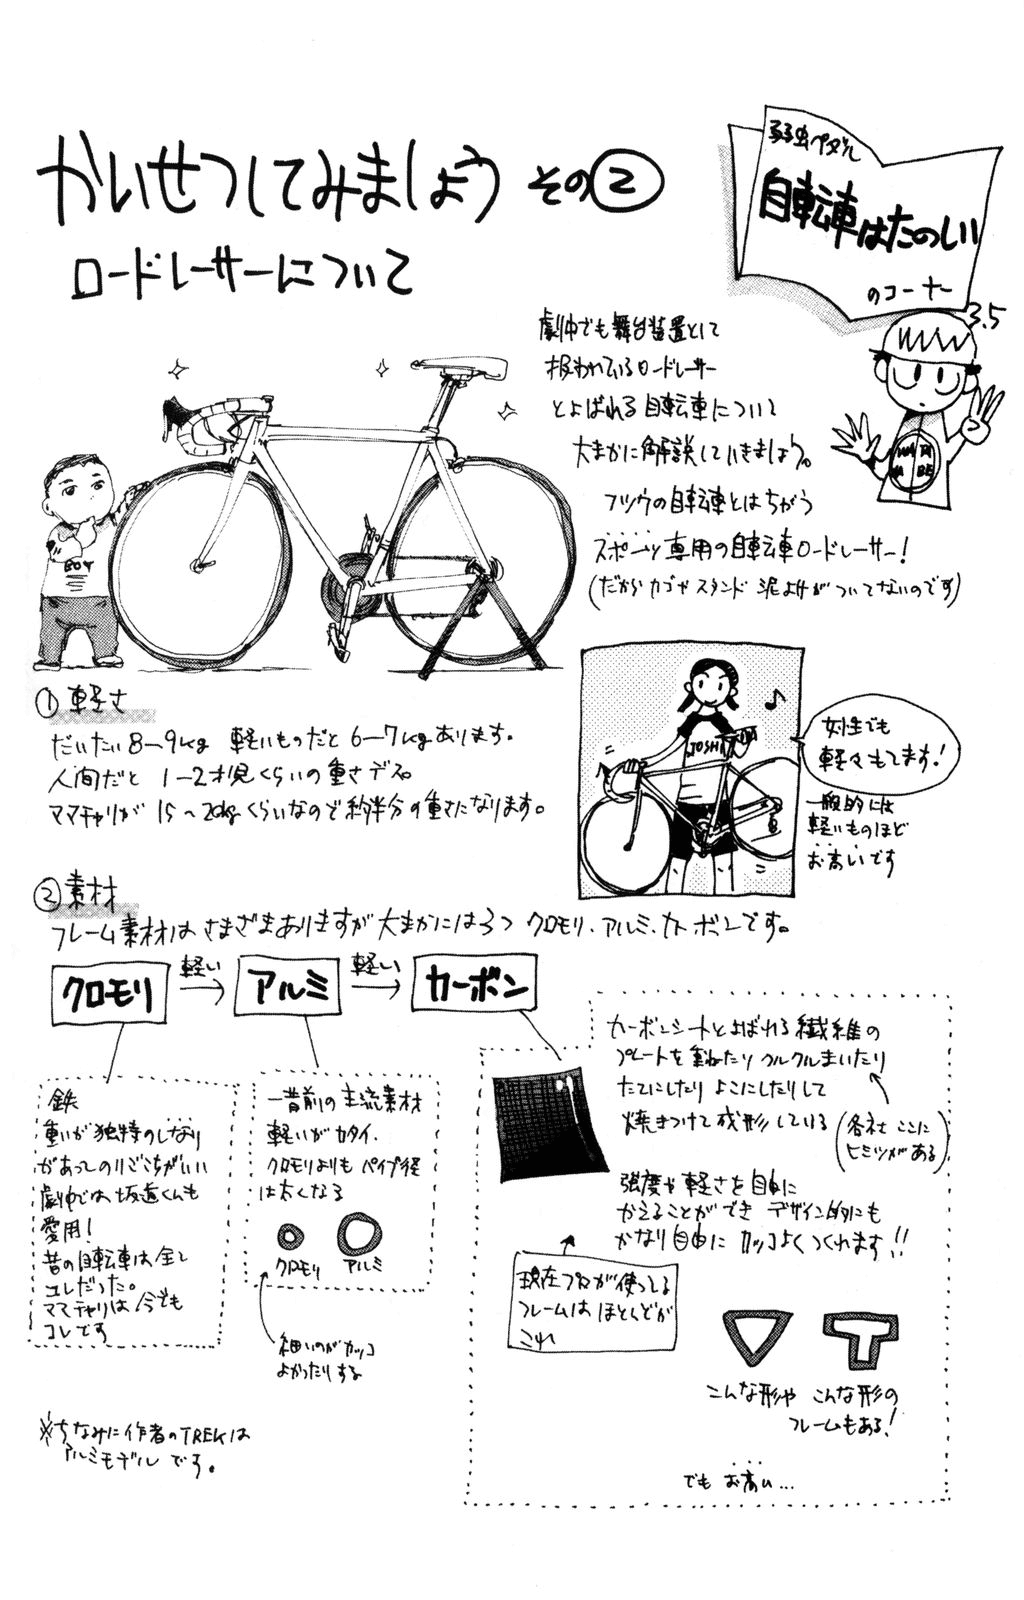 かいせつしてみましょう その②
ロードレーサーについて
弱虫ペダル
自転車はたのしい
のコーナー
3.5
WATA
NABE
劇中でも舞台装置として
扱われているロードレーサー
とよばれる自転車について
大まかに解説していきましょう。
フツウの自転車とはちがう
スポーツ専用の自転車ロードレーサー!
(だからカゴやスタンド 泥よけがついてないのです)
BOY
①軽さ
だいたい8〜9kg 軽いものだと6〜7kgあります。
人間だと 1〜2才児くらいの重さデス。
ママチャリが 15〜20kgくらいなので約半分の重さになります。
JOSHI
女性でも
軽々もてます!
一般的には
軽いものほど
お高いです
②素材
フレーム素材はさまざまありますが大まかには3つ クロモリ、アルミ、カーボンです。
クロモリ
軽い
アルミ
軽い
カーボン
鉄
重いが独特のしなり
があってのりごこちがいい
劇中では坂道くんも
愛用!
昔の自転車は全て
コレだった。
ママチャリは今でも
コレです
一昔前の主流素材
軽いがカタイ.
クロモリよりも パイプ径
は太くなる
クロモリ
アルミ
細いのがカッコ
よかったりする
カーボンシートとよばれる繊維の
プレートを重ねたりクルクルまいたり
たてにしたりよこにしたりして
焼きつけて成形している
(各社ここに
ヒミツがある)
強度や軽さを自由に
かえることができ デザイン的にも
かなり自由に カッコよくつくれます!!
現在プロが使ってる
フレームは ほとんどが
これ
こんな形や こんな形の
フレームもある!
でも お高い...
※ちなみに作者のTREKは
アルミモデル です。